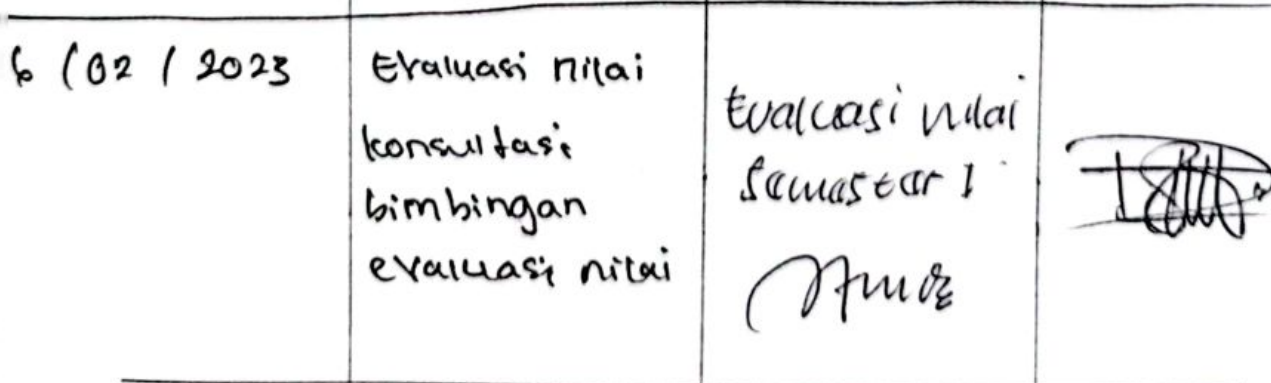 6 / 02 / 2023
Evaluasi nilai
konsultasi
bimbingan
evaluasi nilai
Evaluasi nilai
Semester 1